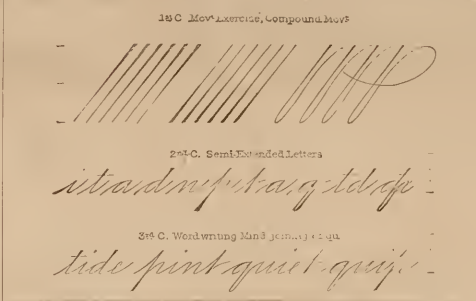 1st C. Mov't Exercise, Compound Mov's
2nd C. Semi-Extended Letters
3rd C. Word writing Mind joining of qu
tide pint quiet